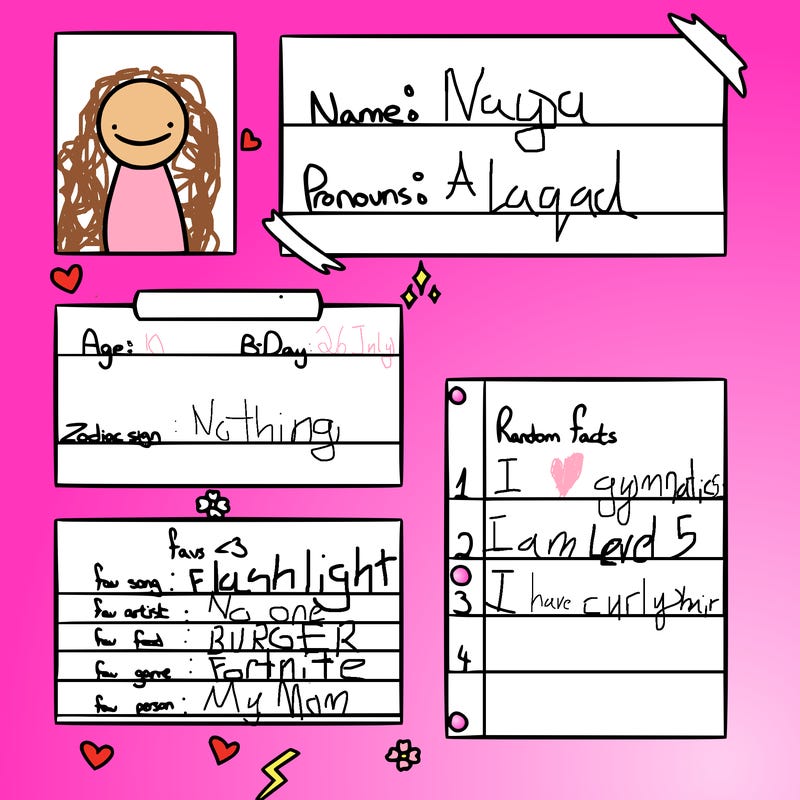 Name: Naya
Pronouns: Alaqad
Age:
B-Day: 26 July
Zodiac sign : Nothing
favs <3
fav song : Flashlight
fav artist : No one
fav food : BURGER
fav game : Fortnite
fav person : My Mom
Random facts
1 I ♥ gymnatics
2 I am Level 5
3 I have curly hair
4